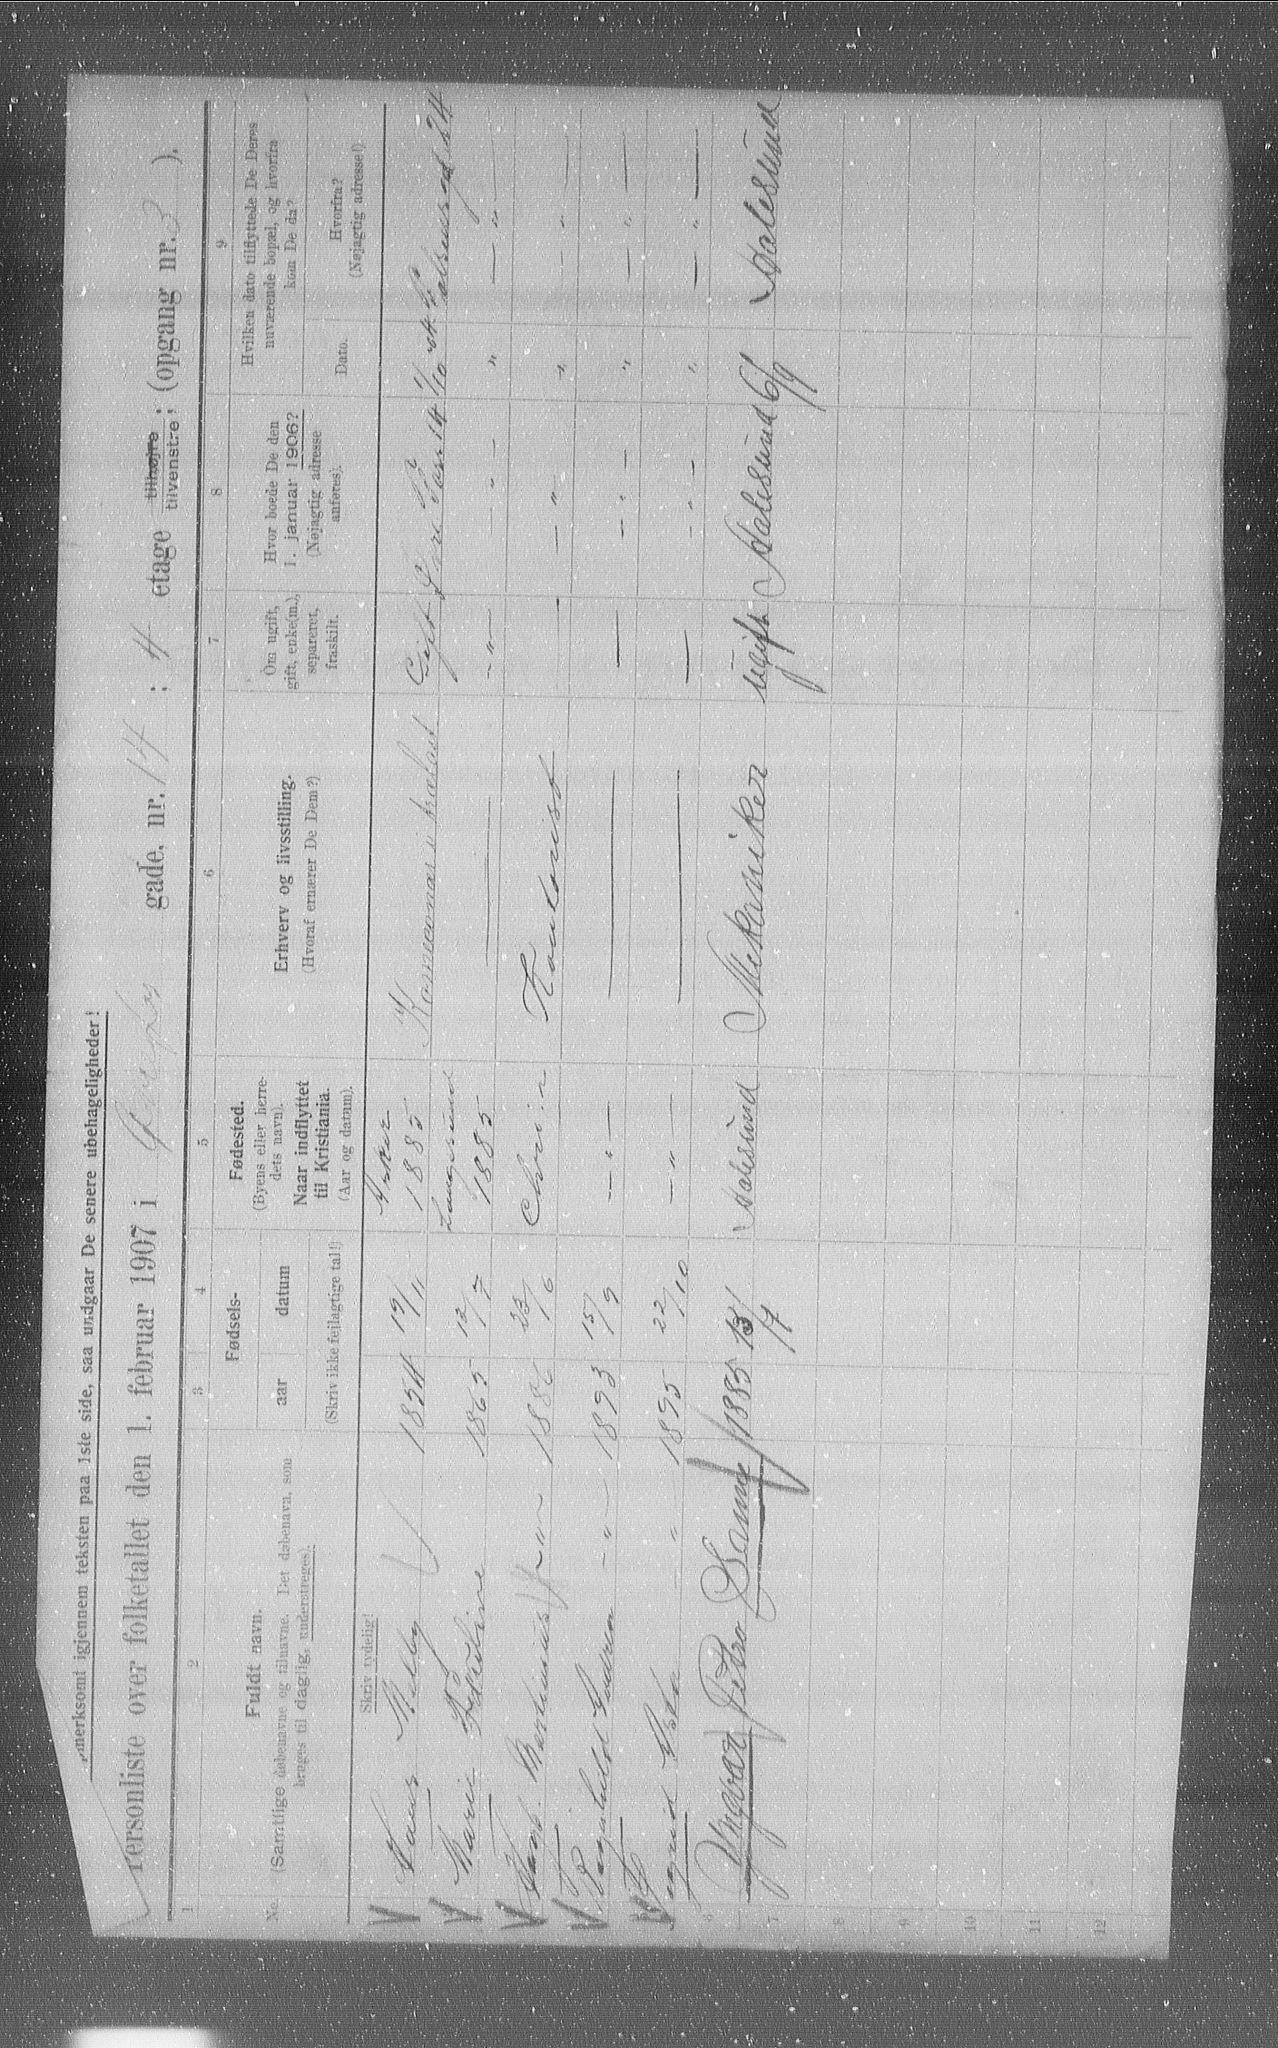 merksomt igjennem teksten paa 1ste side, saa undgaar De senere ubehageligheder!
Personliste over folketallet den 1. februar 1907 i gade, nr. 14 ; 4 etage tilhøjre tilvenstre; (opgang nr. 3 ).
1 2 3 4 5 6 7 8 9
No.
Fuldt navn.
(Samtlige døbenavne og tilnavne. Det døbenavn, som
bruges til daglig, understreges).
Skriv tydelig!
Fødsels-
aar datum
(Skriv ikke fejlagtige tal!)
Fødested.
(Byens eller herre-
dets navn).
Naar indflyttet
til Kristiania.
(Aar og datum).
Erhverv og livsstilling.
(Hvoraf ernærer De Dem?)
Om ugift,
gift, enke(m.),
separeret,
fraskilt.
Hvor boede De den
1. januar 1906?
(Nøjagtig adresse
anføres).
Hvilken dato tilflyttede De Deres
nuværende bopæl, og hvorfra
kom De da?
Dato.
Hvorfra?
(Nøjagtig adresse!)
Hans Melby 1854 19/11 1885 Gift
Marie 1865 12/7 Langesund 1885 — " — — " — " — " —
Martinius — " — 1886 23/6 Chria Kontorist — — " — " — " —
Ragnhild Andrea — " — 1893 15/9 — " — — — — " — " — " —
Ingrid — " — 1895 22/10 — " — — — — " — " — " —
6
7 Yngvar Petro Sannes 1885 13/7 Aalesund Mekaniker ugift Aalesund 6/9 Aalesund
8
9
10
11
12